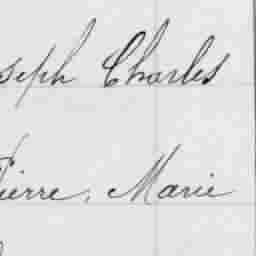 oseph Charles
Pierre, Marie